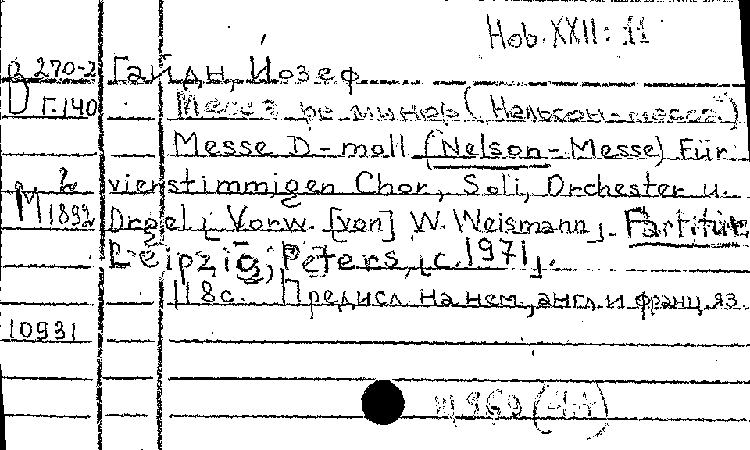 Hob. XXII: 11
D 270-2 Гайдн, Йозеф
Г-140 Месса ре минор (Нельсон-месса)
Messe D-moll (Nelson-Messe) Für
2 vierstimmigen Chor, Soli, Orchester u.
M 1892 Orgel. Vorw. [von] W. Weismann. Partitur.
Leipzig, Peters, [c. 1971].
118 с. Предисл. на нем., англ. и франц. яз.
10931